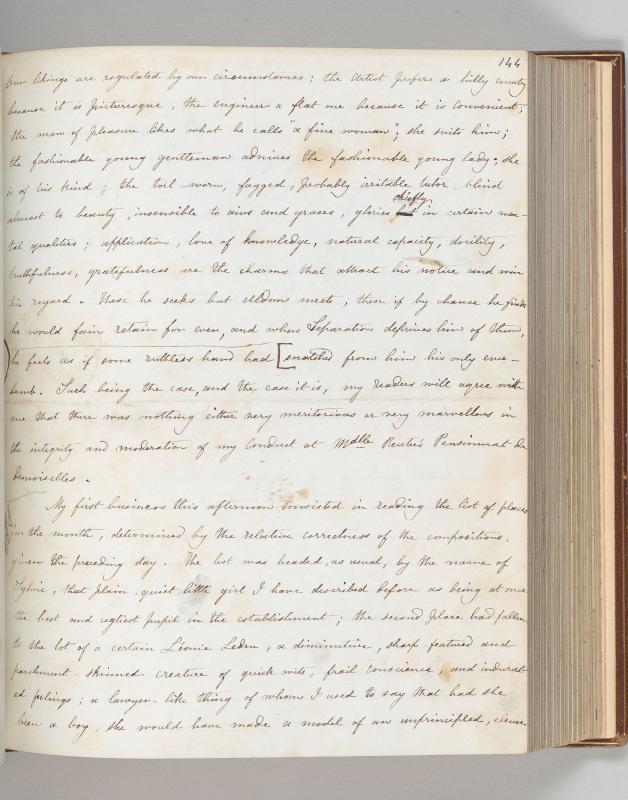 144
Our likings are regulated by our circumstances; the artist prefers a hilly county
because it is picturesque, the engineer a flat one because it is convenient;
the man of pleasure likes what he calls "a fine woman"; she suits him;
the fashionable young gentleman admires the fashionable young lady; she
is of his kind; the toil-worn, fagged, probably irritable tutor blind
chiefly
almost to beauty, insensible to airs and graces, glories in certain men-
tal qualities; application, love of knowledge, natural capacity, docility,
truthfulness, gratefulness are the charms that attract his notice and win
his regard. These he seeks but seldom meets; these if by chance he finds
he would fain retain for ever, and when Separation deprives him of them,
he feels as if some ruthless hand had [snatched from him his only ewe-
lamb. Such being the case, and the case it is, my readers will agree with
me that there was nothing either very meritorious or very marvellous in
the integrity and moderation of my Conduct at Mdlle Reuter's Pensionnat de
demoiselles.
My first business this afternoon consisted in reading the list of places
for the month, determined by the relative correctness of the compositions,
given the preceding day. The list was headed, as usual, by the name of
Sylvie, that plain, quiet little girl I have described before as being at once
the best and ugliest pupil in the establishment; the second place had fallen
to the lot of a certain Léonie Ledru, a diminutive, sharp featured and
parchment-skinned creature of quick wits, frail conscience, and indurat-
ed feelings; a lawyer-like thing of whom I used to say that had she
been a boy, she would have made a model of an unprincipled, clever